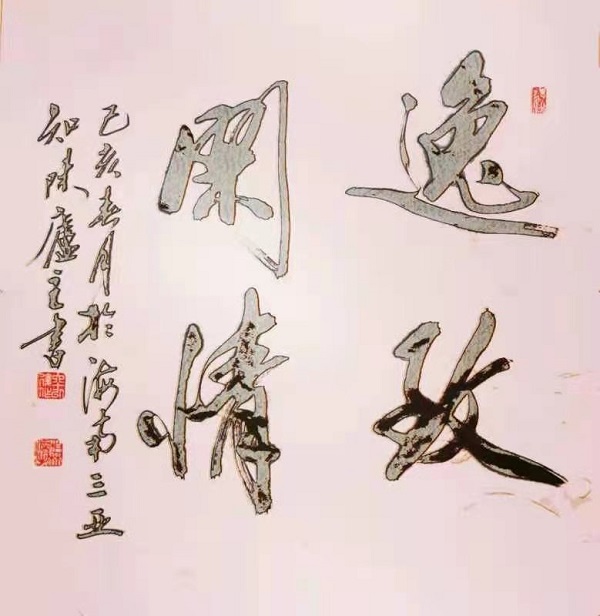 逸致
閑情
己亥春月於海南三亚
知廬主書